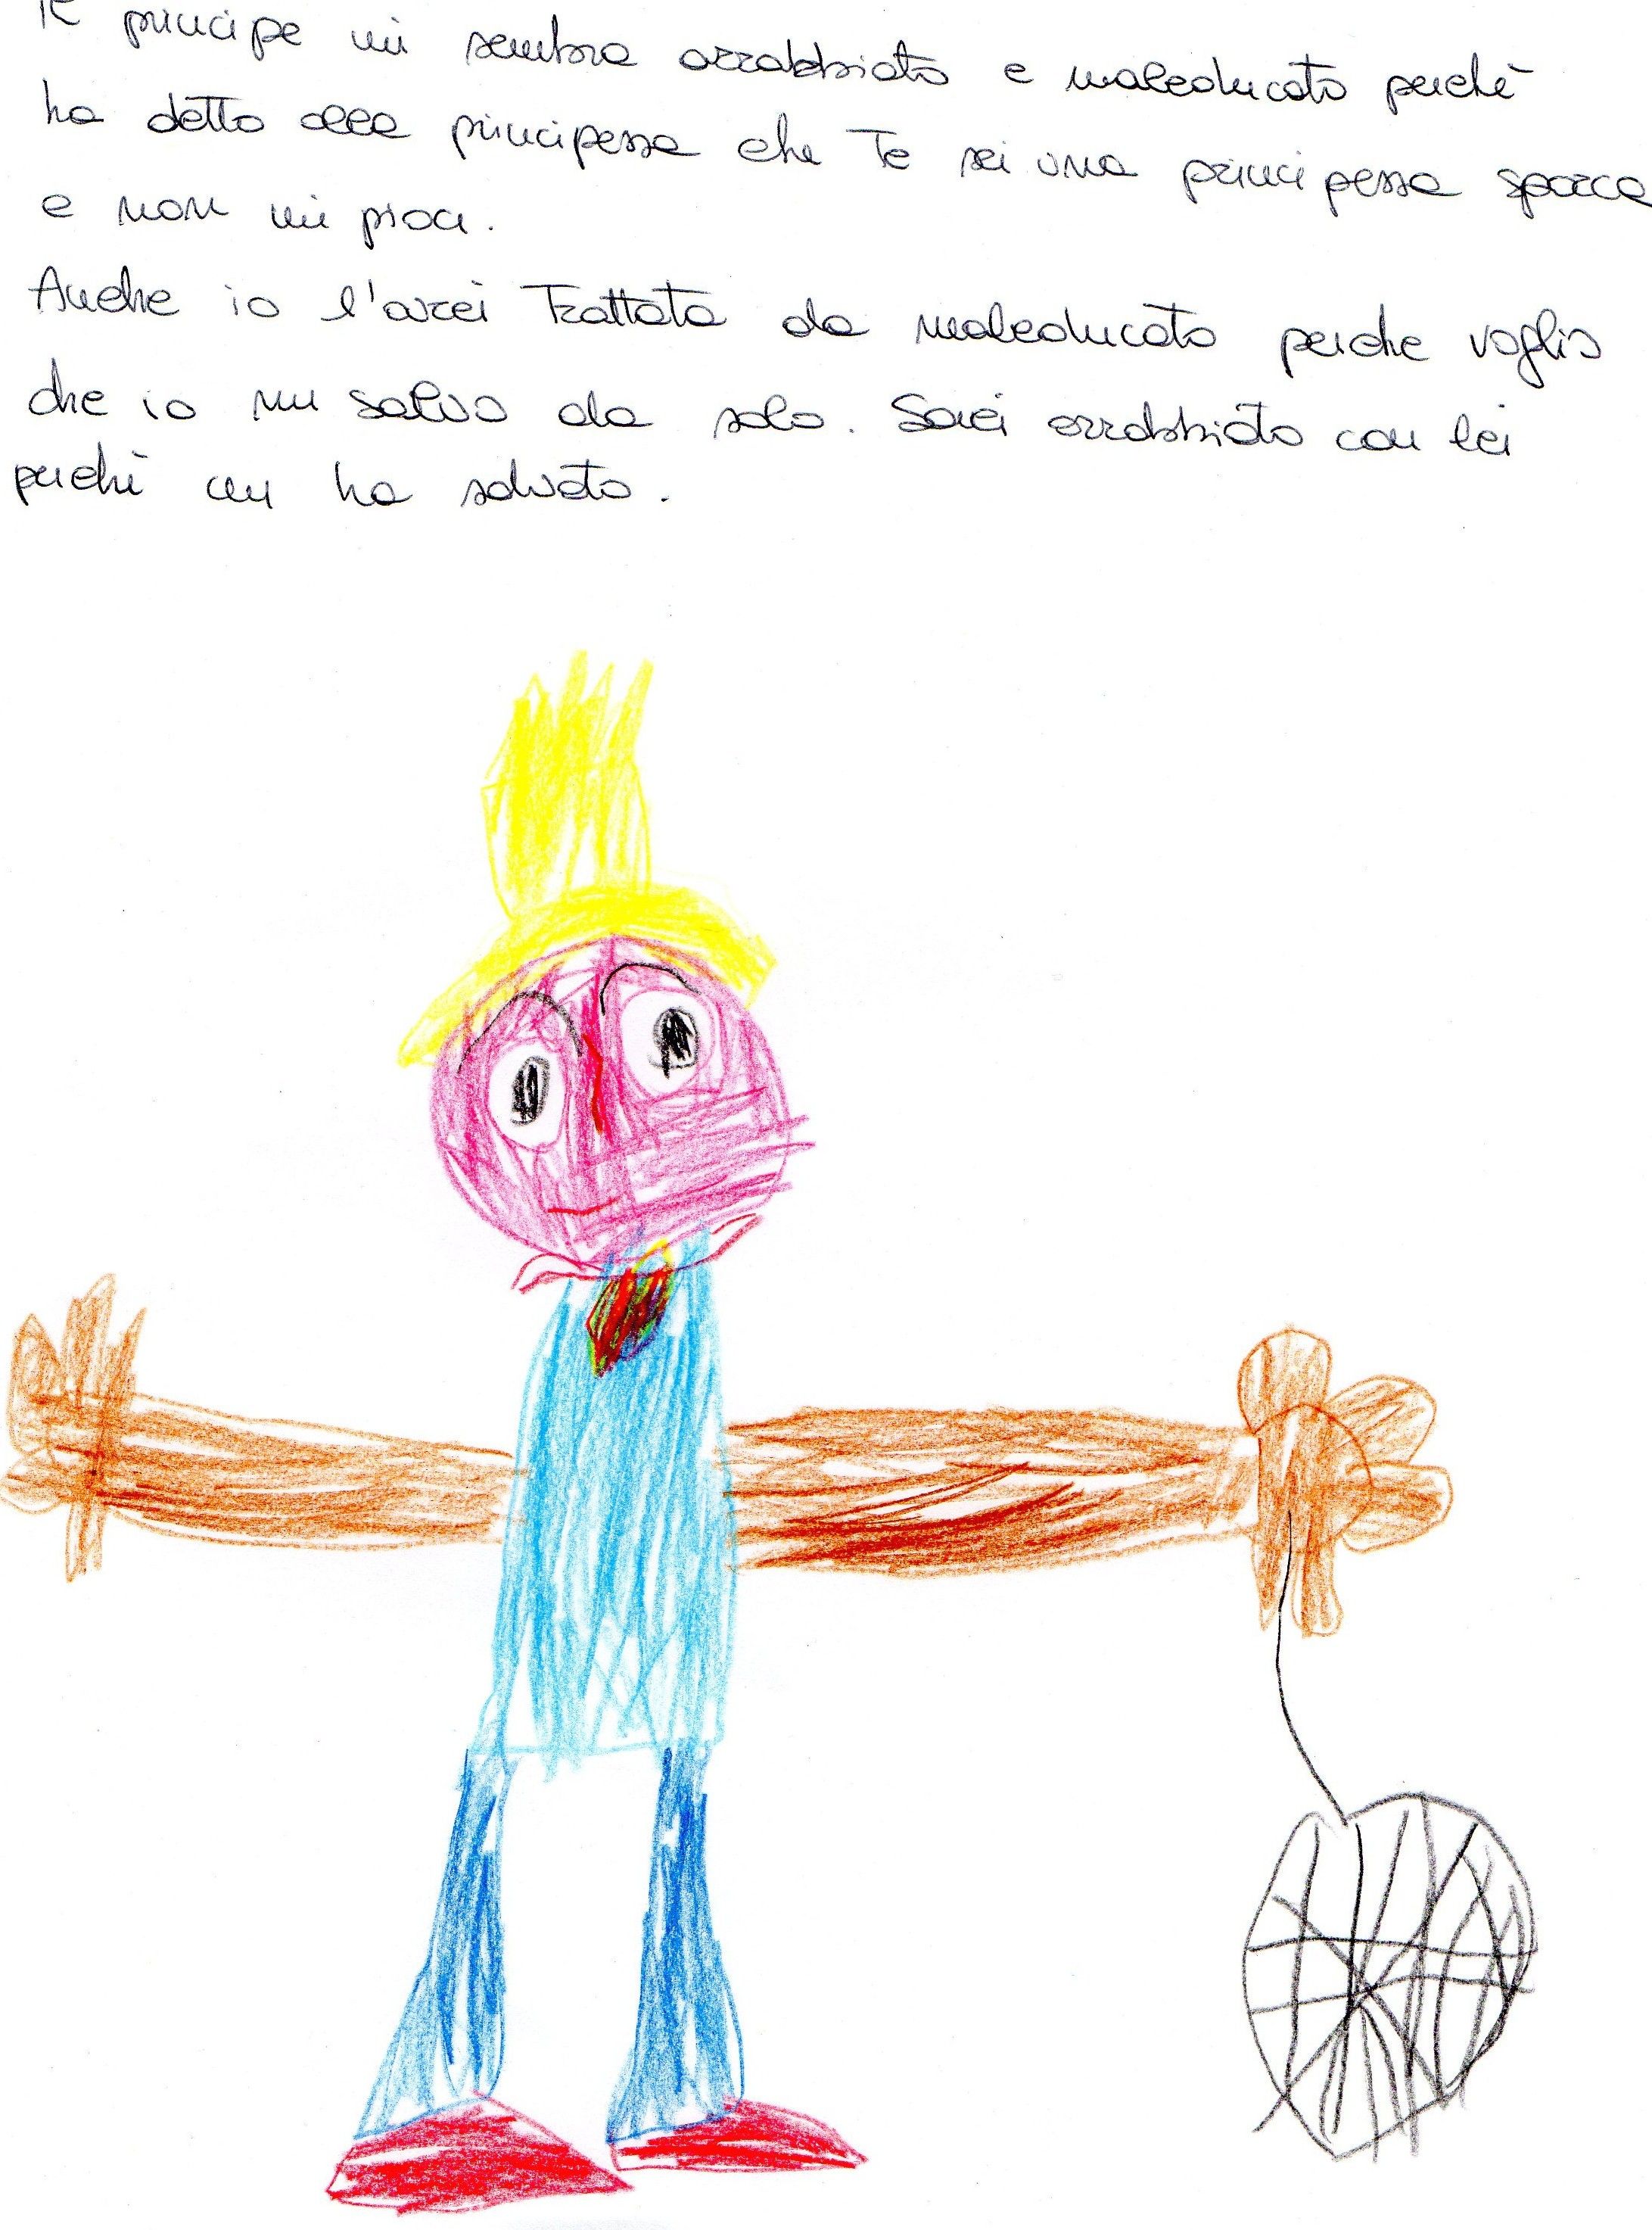 Il principe mi sembra arrabbiato e maleducato perchè
ha detto alla principessa che Te sei una principessa sporca
e non mi piaci.
Anche io l'avrei Trattata da maleducato perche voglio
che io mi salvo da solo. Sarei arrabbiato con lei
perchè mi ha salvato.